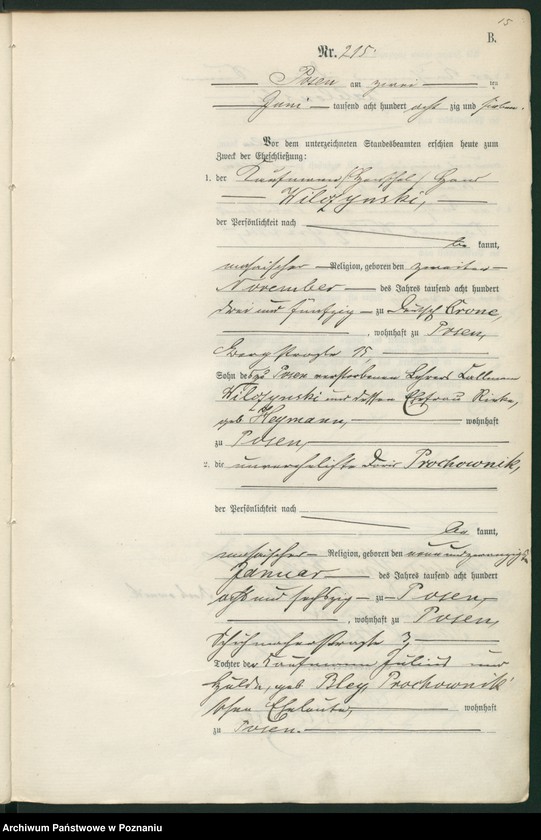 15
B.
Nr. 215.
Posen am zwei ten
Juni tausend acht hundert acht zig und sieben.
Vor dem unterzeichneten Standesbeamten erschien heute zum
Zweck der Eheschließung:
1. der Kaufmann (Herschel) Hans
Wilczynski,
der Persönlichkeit nach
be kannt,
mosaischer Religion, geboren den zweiten
November des Jahres tausend acht hundert
drei und fünfzig zu Deutsch Crone,
, wohnhaft zu Posen,
Bergstraße 15,
Sohn des zu Posen verstorbenen Lehrers Callmann
Wilczynski und dessen Ehefrau Rieke,
geb. Heymann, wohnhaft
zu Posen,
2. die unverehelichte Doris Prochownik,
der Persönlichkeit nach
be kannt,
mosaischer Religion, geboren den neunundzwanzigsten
Januar des Jahres tausend acht hundert
acht und sechszig zu Posen,
, wohnhaft zu Posen,
Schuhmacherstraße 3,
Tochter der Kaufmann Julius und
Hulda, geb. Bley, Prochownik'
schen Eheleute, wohnhaft
zu Posen.
Archiwum Państwowe w Poznaniu